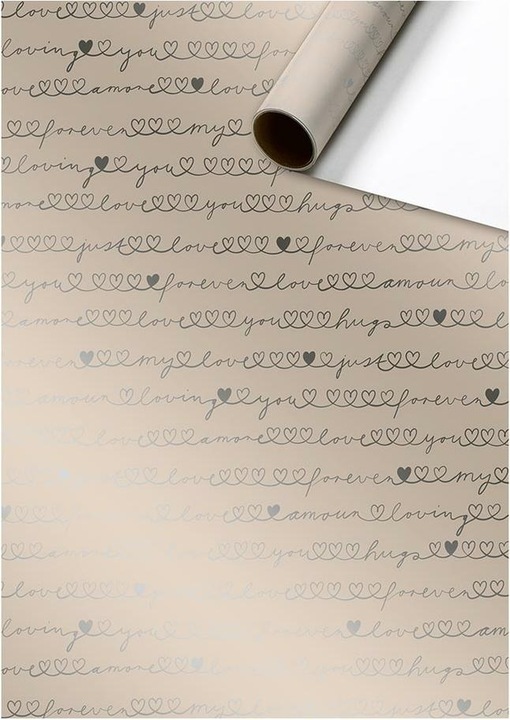 love just love
loving you for
ove amore love
forever my
loving you
more love you hugs
just love forever my
you forever love amour l
amore love you hugs l
forever my love just love
amour loving you forever
love amore love you
love forever my
love amour loving
amore you hugs
love love forever
loving you love am
ove amore you hugs
forever my love just love